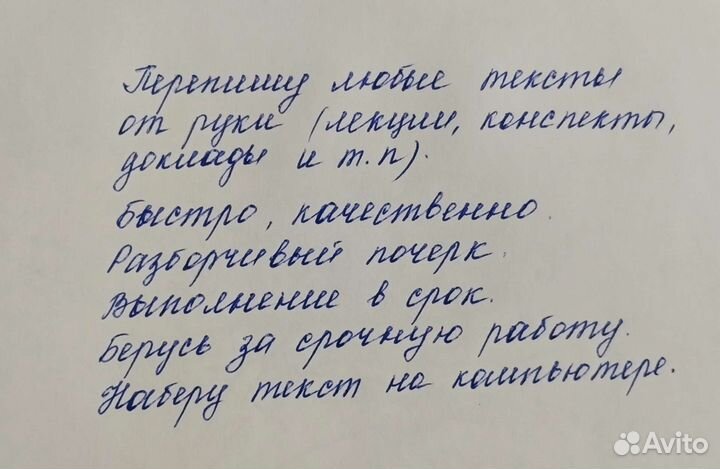 Перепишу любые тексты
от руки (лекции, конспекты,
доклады и т.п).
Быстро, качественно.
Разборчивый почерк.
Выполнение в срок.
Берусь за срочную работу.
Наберу текст на компьютере.
Avito